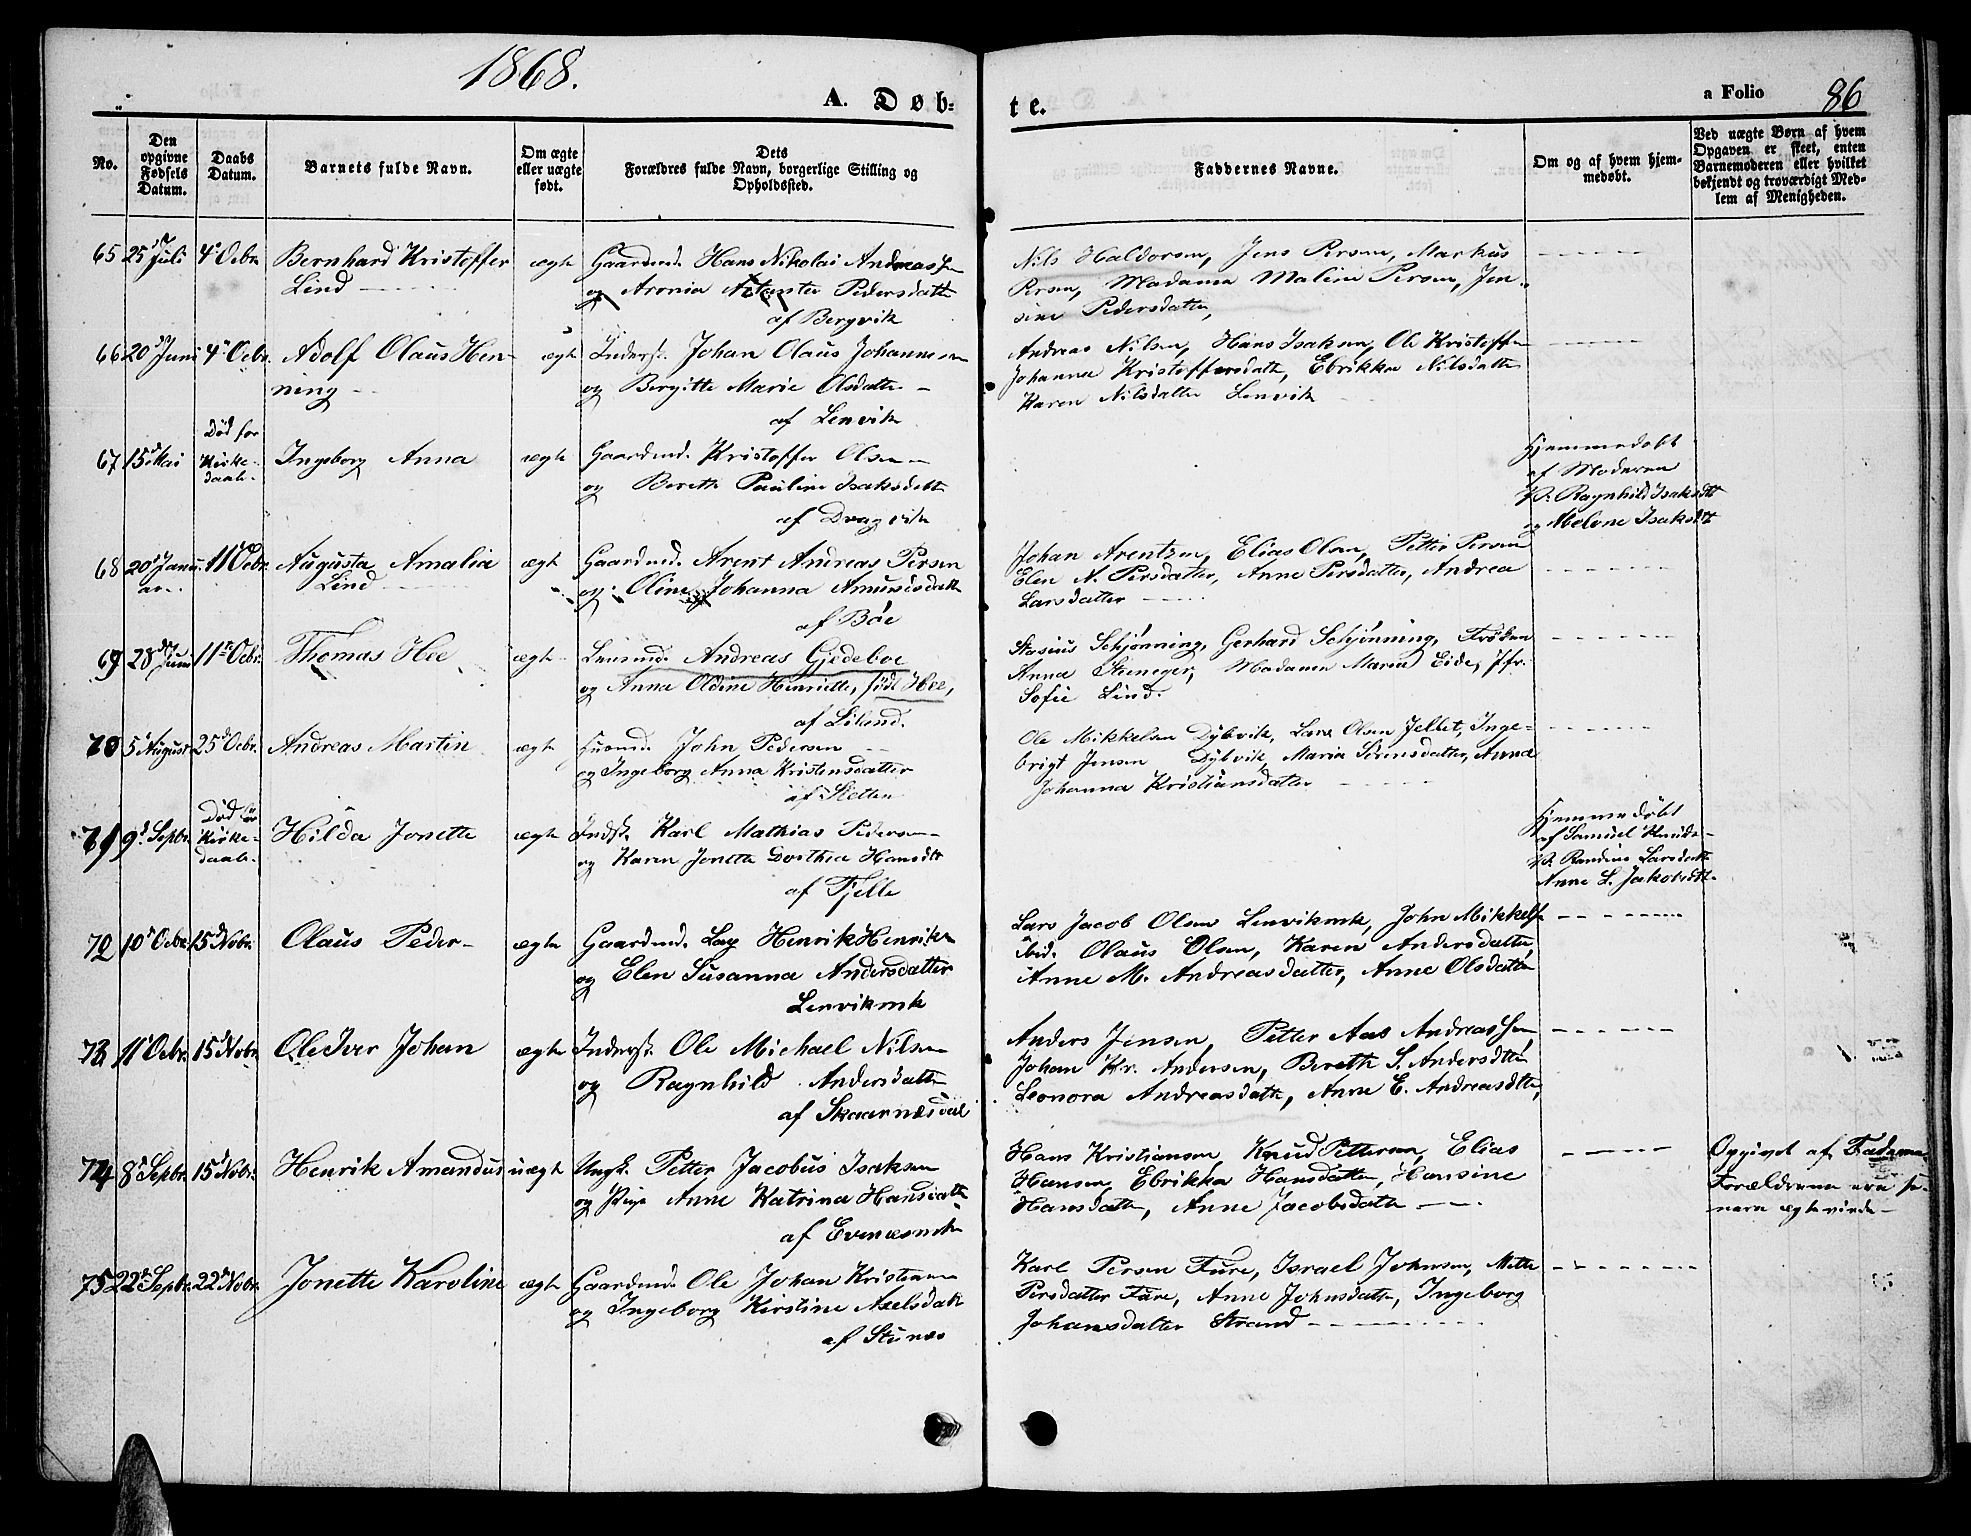 1868.
A. Døb-
te.
a Folio 86
No.
Den opgivne Fødsels Datum.
Daabs Datum.
Barnets fulde Navn.
Om ægte eller uægte født.
Dets Forældres fulde Navn, borgerlige Stilling og Opholdssted.
Faddernes Navne.
Om og af hvem hjemmedøbt.
Ved uægte Børn af hvem Opgaven er skeet, enten Barnemoderen eller hvilket bekjendt og troværdigt Medlem af Menigheden.
65 25d Juli 4de Octbr. Bernhard Kristoffer ægte Gaardmd. Hans Nikolai Andreassen
Lind og Aronia Pedersdatter
af Bergvik
Nils Haldorsen, Jens Persen, Markus
Persen, Madame Maline Persen, Jen-
sine Pedersdatter,
66 20d Juni 4de Octbr. Adolf Olaus Hen- ægte Inderst. Johan Olaus Johannesen
ning og Bergitte Marie Olsdatter
af Lenvik
Andreas Nilsen, Hans Isaksen, Ole Kristoffersen
Johanna Kristoffersdatter, Ebrikka Nilsdatter
Karen Nilsdatter Lenvik
67 15d Mai Død før Kirke-daab. Ingeborg Anna ægte Gaardmd. Kristoffer Olsen
og Bereth Pauline Isaksdatter
af Dragvik
Hjemmedøbt
af Moderen
V. Ragnhild Isaksdtr
og Melone Isaksdtr
68 20d Janu-ar. 11te Octbr. Augusta Amalia ægte Gaardmd. Arent Andreas Persen
Lind og Oline Johanna Amundsdatter
af Bøe
Johan Arentzen, Elias Olsen, Petter Persen
Elen N. Persdatter, Anne Persdatter, Andrea
Larsdatter
69 28d Juni 11te Octbr. Thomas Hee ægte Lensmd. Andreas Gjedeboe
og Anna Oldine Henriette, født Hee,
af Liland.
Stasius Schjønning, Gerhard Schjønning, Frøken
Anna Steneger, Madamen Maria Eide, Jfr.
Sofie Lind.
70 5d August 25d Octbr. Andreas Martin ægte Huusmd. John Pedersen
og Ingeborg Anna Kristensdatter
af Sletten
Ole Mikkelsen Dybvik, Lars Olsen Jellet, Inge-
brigt Jensen Dybvik, Maria Sørensdatter, Anna
Johanna Kristiansdatter
71 9d Septbr. Død før Kirke-daab. Hilda Jonette ægte Indst. Karl Mathias Pedersen
og Karen Jonette Dorthea Hansdtr
af Fjelle
Hjemmedøbt
af Samuel Knuds-
V. Randine Larsdatter
Anne L. Jakobsdtr.
72 10d Octbr. 15d Novbr. Olaus Peder ægte Gaardmd. Lars Henrik Henriksen
og Elen Susanna Andersdatter
Lenvikmk
Lars Jacob Olsen Lenvikmk, John Mikkelsen
ibid. Olaus Olsen, Karen Andersdatter,
Anne M. Andreasdatter, Anne Olsdatter
73 11d Octbr. 15d Novbr. Ole Iver Johan ægte Inderst. Ole Michael Nilsen
og Ragnhild Andersdatter
af Skaarnæsdal
Anders Jensen, Petter Aas Andreassen,
Johan Kr. Andersen, Bereth S. Andersdtter
Leonora Andreasdatter, Anne E. Andreasdtter,
74 8d Septbr. 15d Novbr. Henrik Amandus uægte Ungk. Petter Jacobus Isaksen
og Pige Anne Katrina Hansdatter
af Evenæsmk
Hans Kristiansen, Knud Pettersen, Elias
Hansen, Ebrikka Hansdatter, Hansine
Hansdatter, Anne Jacobsdatter
Opgivet af Faderen
Forældrene ere se-
nere ægteviede
75 22d Septbr. 22d Novbr. Jonette Karoline ægte Gaardmd. Ole Johan Kristensen
og Ingeborg Kirstine Axelsdatr
af Stunæs
Karl Persen Fure, Israel Johnsen, Mette
Persdatter Fure, Anne Johnsdatter, Ingeborg
Johansdatter Strand